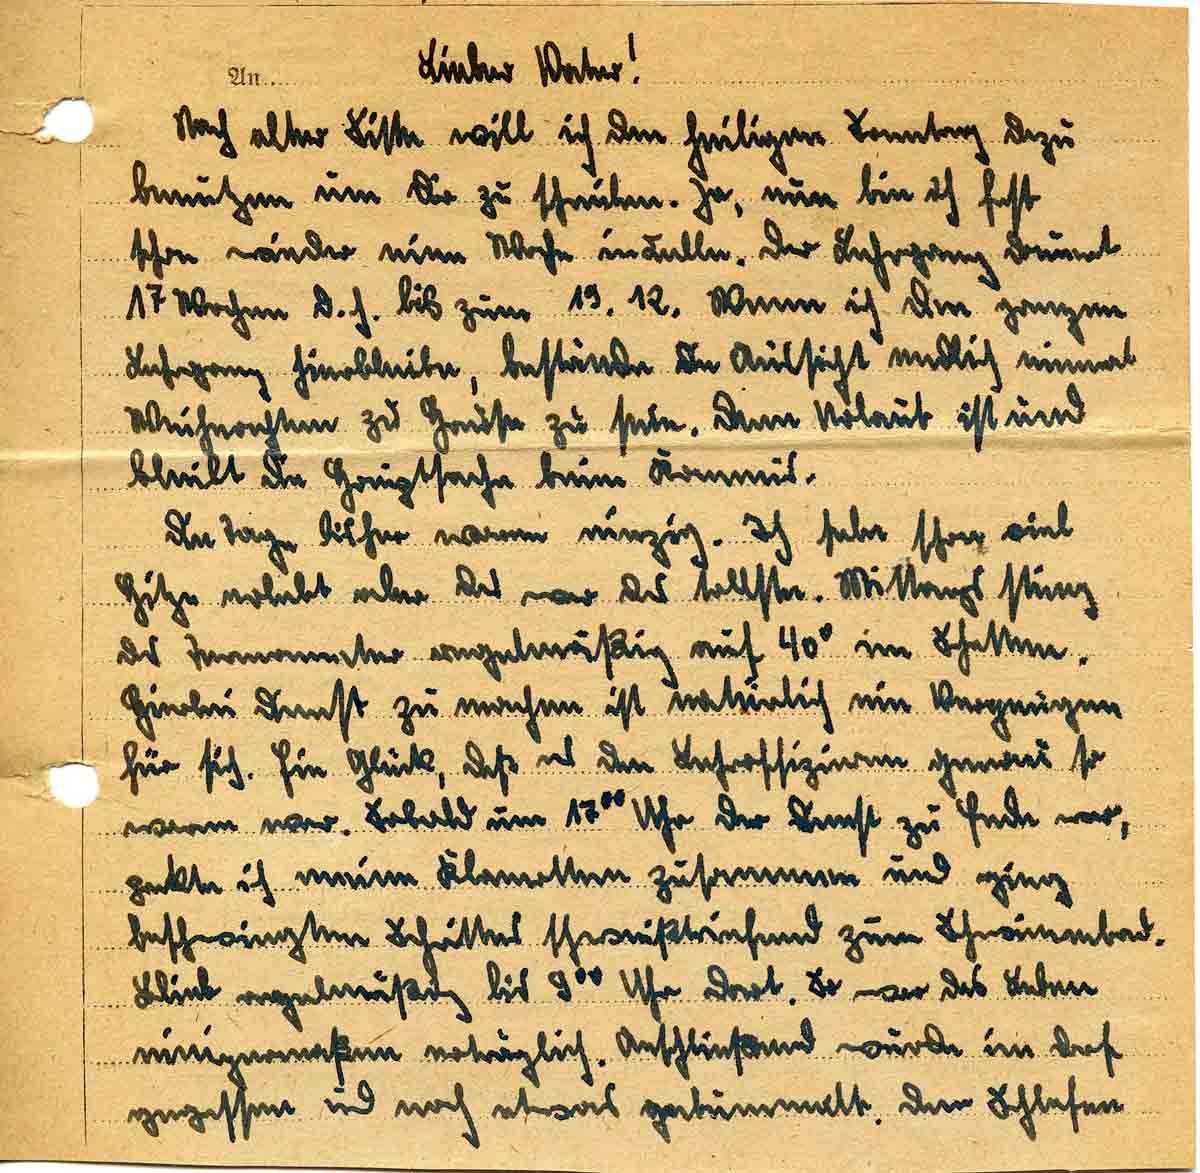 An
Lieber Vater!
Nach alter Sitte will ich den heiligen Sonntag dazu
benutzen um Dir zu schreiben. Ja, nun bin ich fast
schon wieder eine Woche in Der Lehrgang dauert
17 Wochen d.h. bis zum 19. 12. Wenn ich den ganzen
Lehrgang hierbleibe, bestände die Aussicht endlich einmal
Weihnachten zu Hause zu sein. Denn Urlaub ist und
bleibt die Hauptsache beim Kommis.
Die Tage bisher waren einzig. Ich habe schon viel
Hitze erlebt aber das war das tollste. Mittags stieg
das regelmäßig auf 40° im Schatten.
Hierbei Dienst zu machen ist natürlich ein Vergnügen
für sich. Ein Glück, daß es den Lehroffizieren genau so
warm war. Sobald um 17⁰⁰ Uhr der Dienst zu Ende war,
packte ich meine Klamotten zusammen und ging
beschwingten Schrittes schweißtriefend zum Schwimmbad.
Blieb regelmäßig bis 9⁰⁰ Uhr dort. So war das Leben
einigermaßen erträglich. Anschließend wurde im Dorf
gegessen und noch etwas gebummelt. Den Schlafen